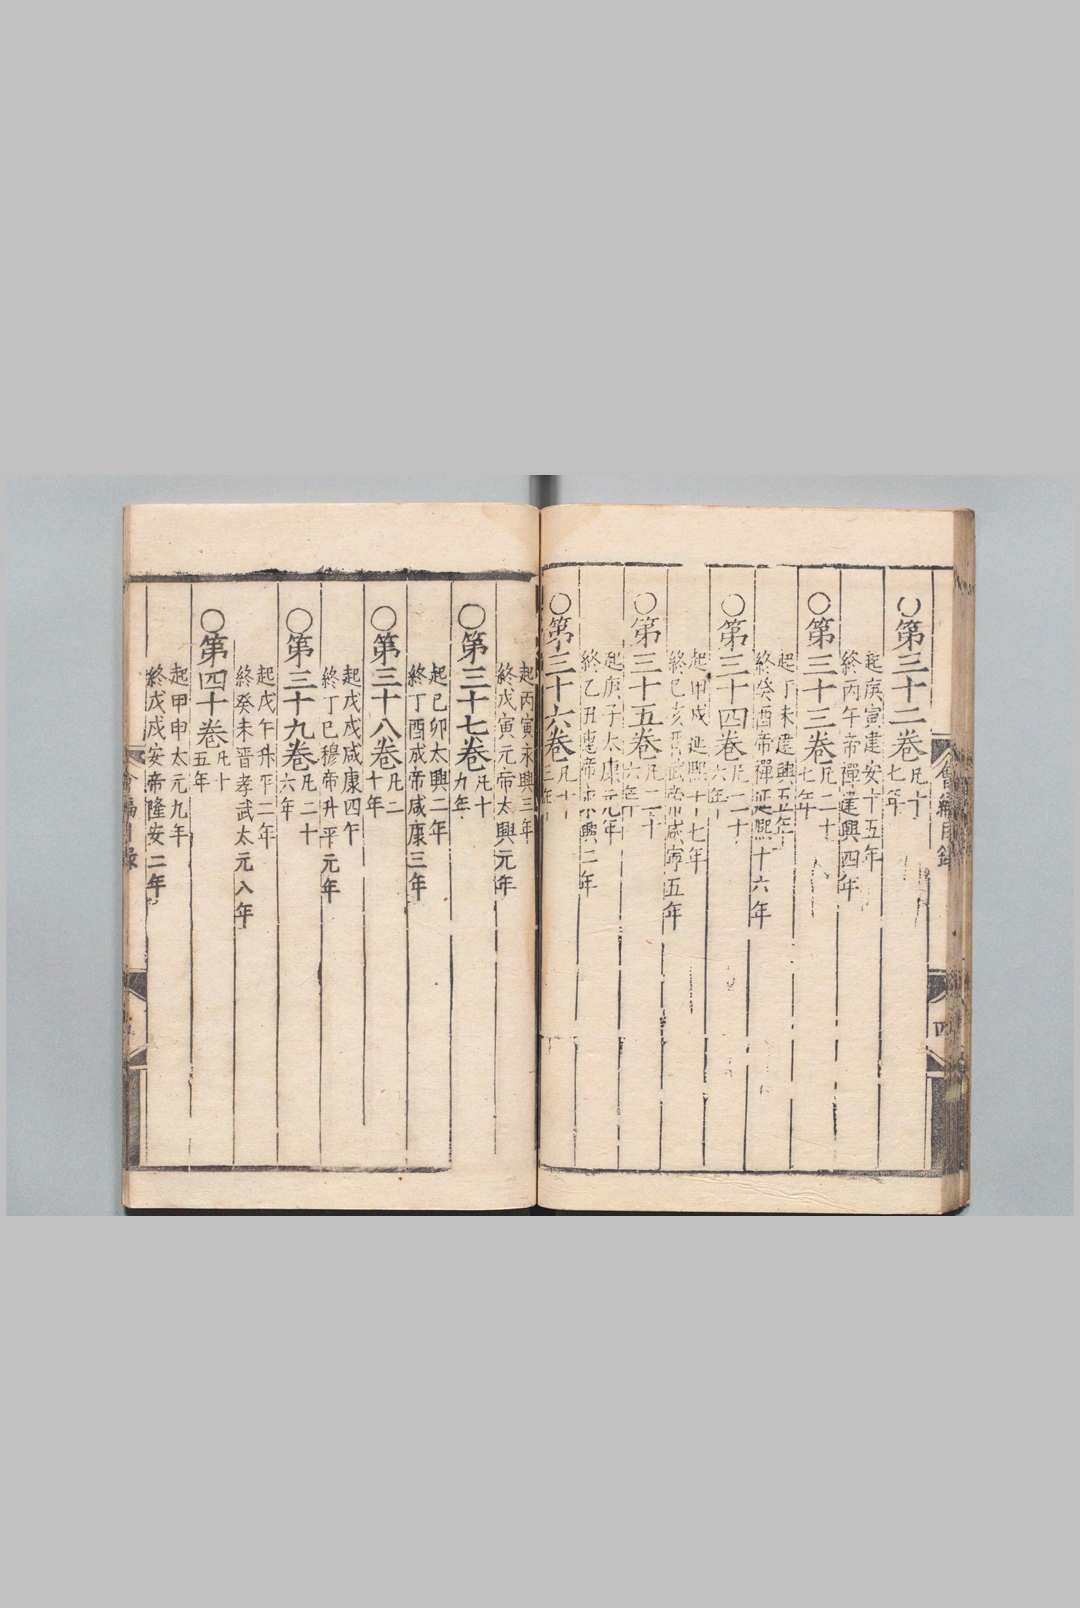 ○第三十二卷凡十七年
起庚寅建安十五年
終丙午帝禪建興四年
○第三十三卷凡二十七年
起丁未建興五年
終癸酉帝禪延熙十六年
○第三十四卷凡二十六年
起甲戌延熙十七年
終己亥晋武帝咸寧五年
○第三十五卷凡二十六年
起庚子太康元年
終乙丑惠帝永興二年
○第三十六卷凡十三年
起丙寅永興三年
終戊寅元帝太興元年
○第三十七卷凡十九年
起己卯太興二年
終丁酉成帝咸康三年
○第三十八卷凡二十年
起戊戌咸康四年
終丁巳穆帝升平元年
○第三十九卷凡二十六年
起戊午升平二年
終癸未晋孝武太元八年
○第四十卷凡十五年
起甲申太元九年
終戊戌安帝隆安二年
會編目錄
四